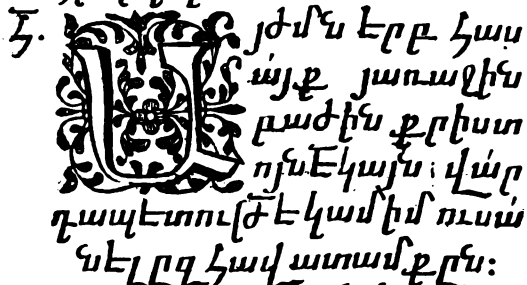 Հ. Այժմն էրբ Հաս
այք յառաջին
բաժին քրիստ
ոյնէկայն՝ վար
դապետութէ կամիմ ուսա
նէլ ըզ Հավատամքըն։